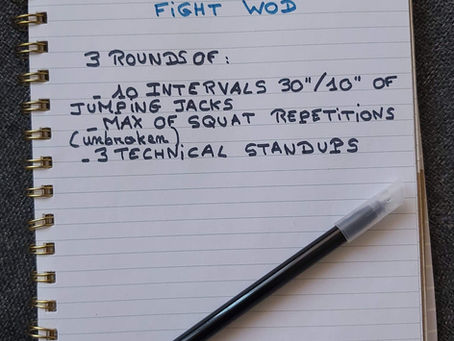 FiGHT WOD
3 ROUNDS OF:
_ 10 INTERVALS 30"/10" OF
JUMPING JACKS
_ MAX OF SQUAT REPETITIONS
(unbroken)
_ 3 TECHNICAL STANDUPS